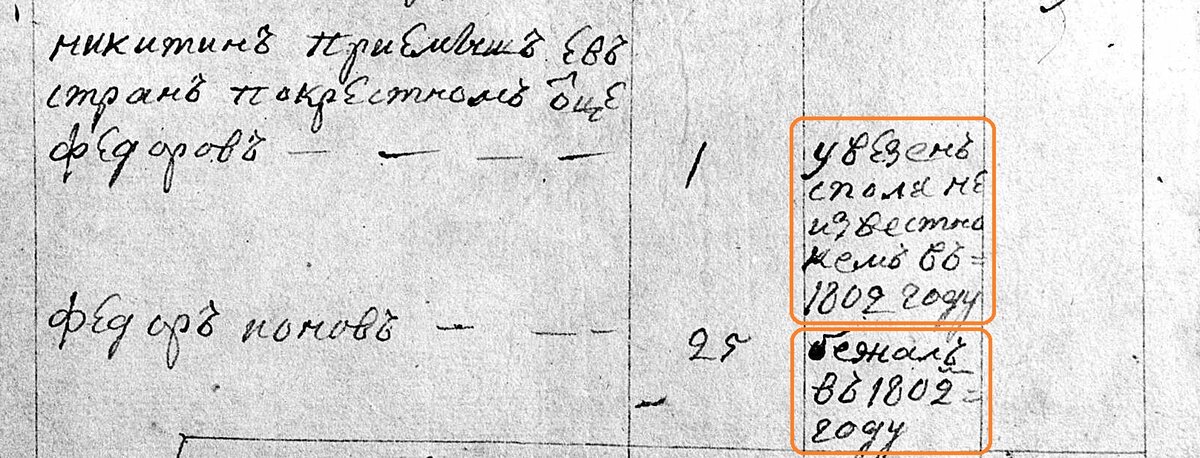 никитинъ приемышъ евъ
странъ покрестномъ оце
федоровъ — — — — 1 увезенъ
споля не
известно
кемъ въ=
1802 году
федоръ поповъ — — — 25 бежалъ
въ 1802=
году